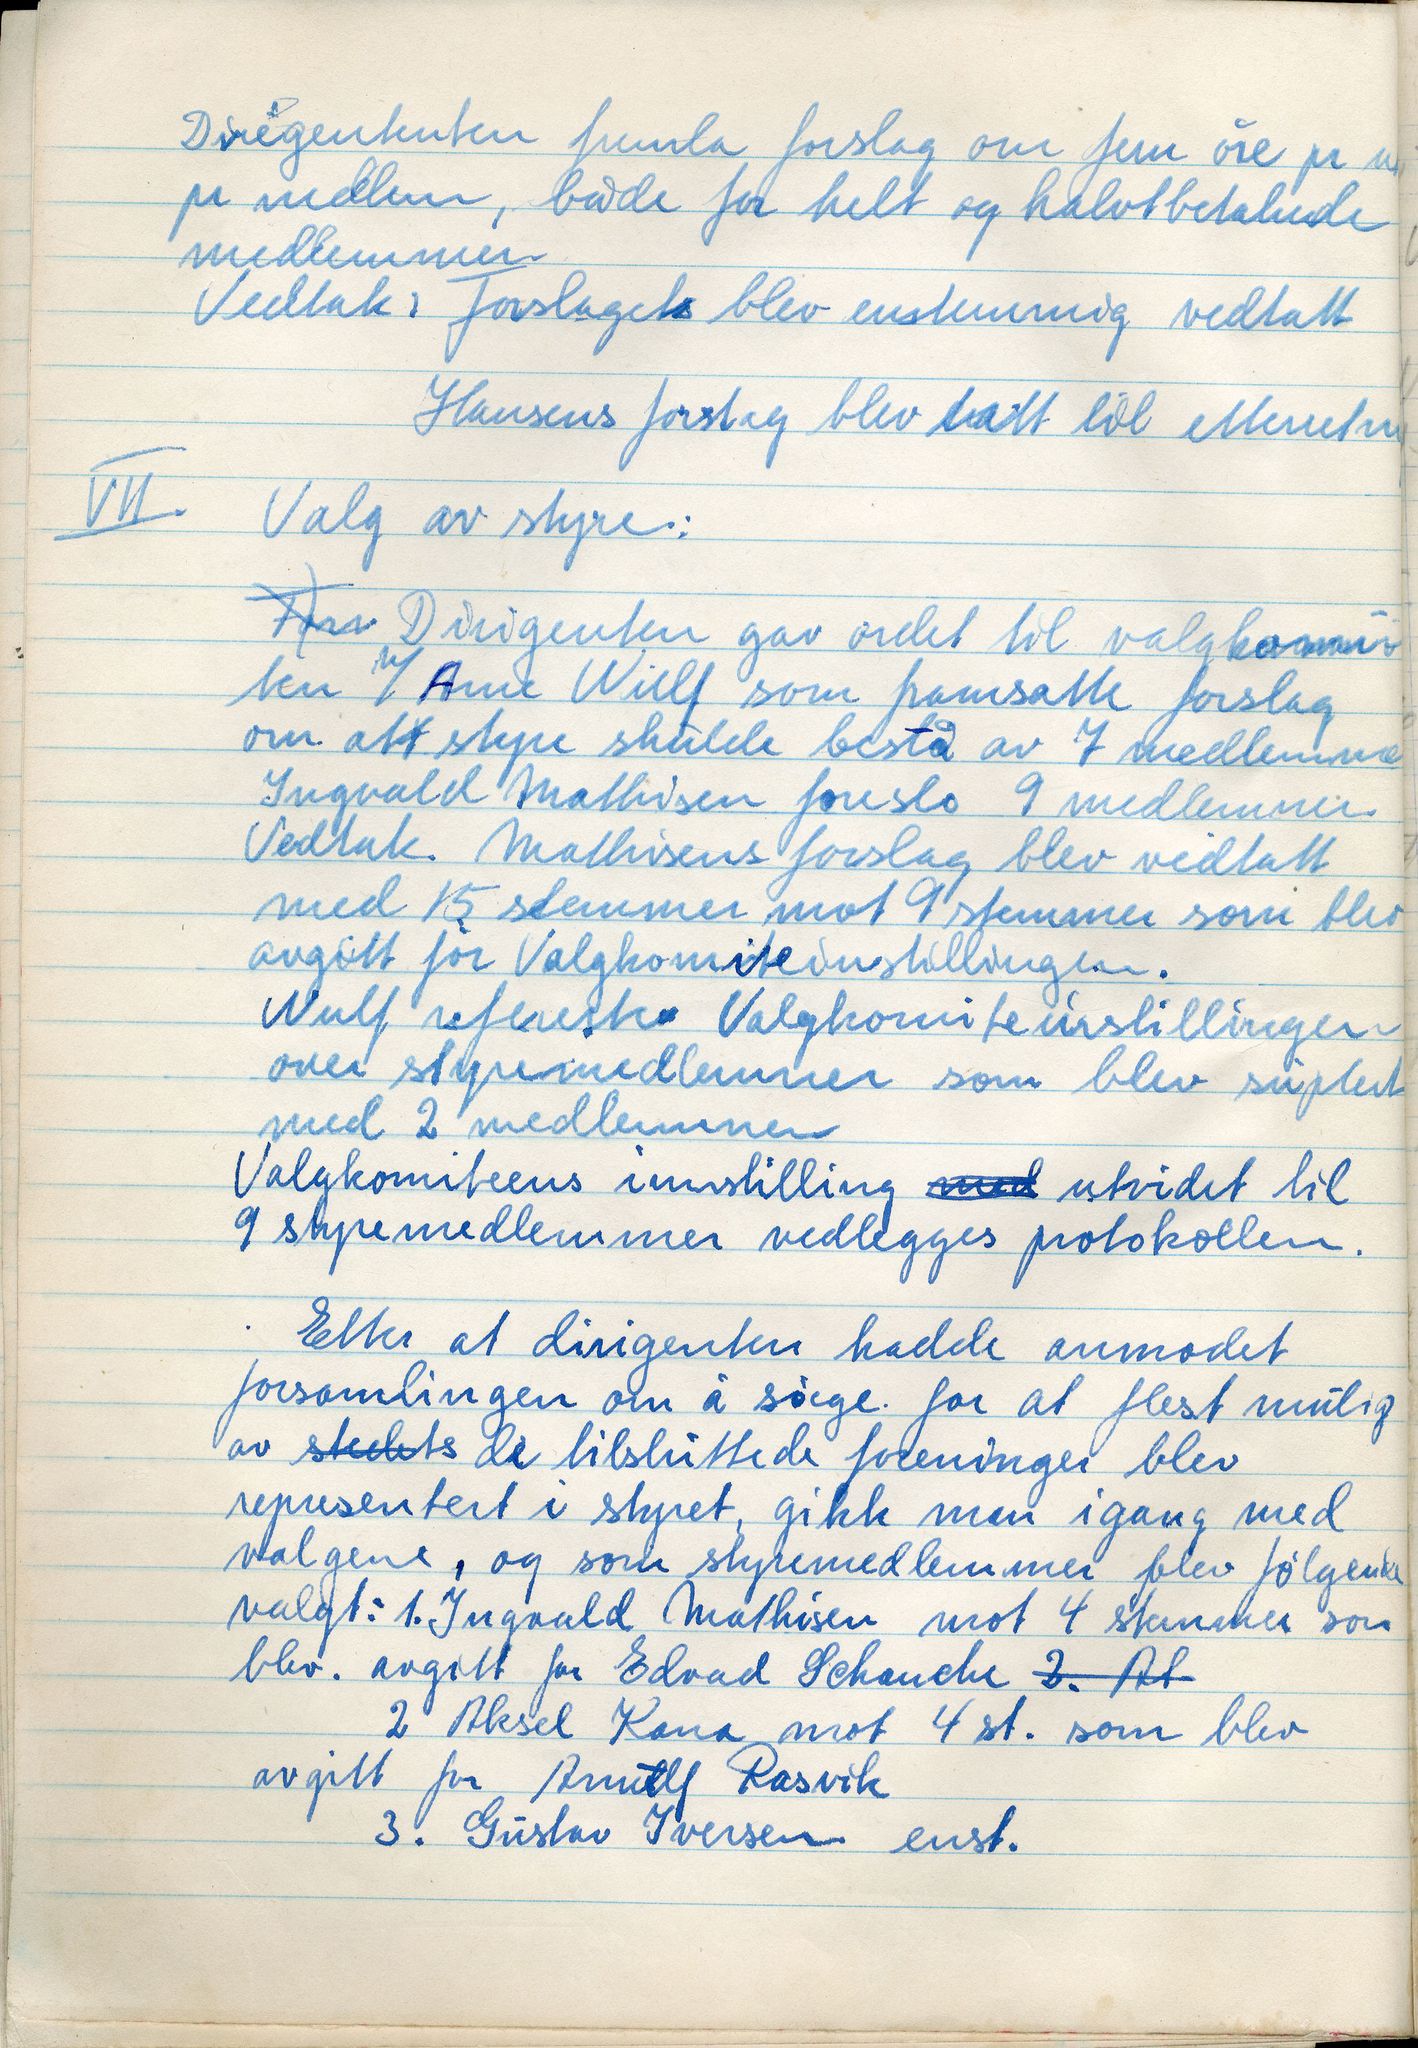 Dirigententen fremla forslag om fem öre pr
pr medlem, både for helt og halvtbetalende
medlemmer
Vedtak: Forslaget blev enstemmig vedtatt
Hansens forslag blev tatt til etterretn
VII. Valg av styre:
Dirigenten gav ordet til valgkomi
ten v/ Arne Wulf som framsatte forslag
om att styre skulde bestå av 7 medlemme
Ingvald Mathisen foreslo 9 medlemmer.
Vedtak. Mathisens forslag blev vedtatt
med 15 stemmer mot 9 stemmer som blev
avgitt för Valgkomiteinstillingen.
Wulf refererte Valgkomiteinstillingen
over styremedlemmer som blev suplert
med 2 medlemmer
Valgkomiteens innstilling med utvidet til
9 styremedlemmer vedlegges protokollen.
Etter at dirigenten hadde anmodet
forsamlingen om å sörge. for at flest mulig
av stedets de tilsluttede foreninger blev
representert i styret, gikk man igang med
valgene, og som styremedlemmer blev fölgende
valgt: 1. Ingvald Mathisen mot 4 stemmer som
blev. avgitt for Edvad Schanche 2. At
2 Aksel Kana mot 4 st. som blev
avgitt for Arnulf Rasvik
3. Gustav Iversen enst.